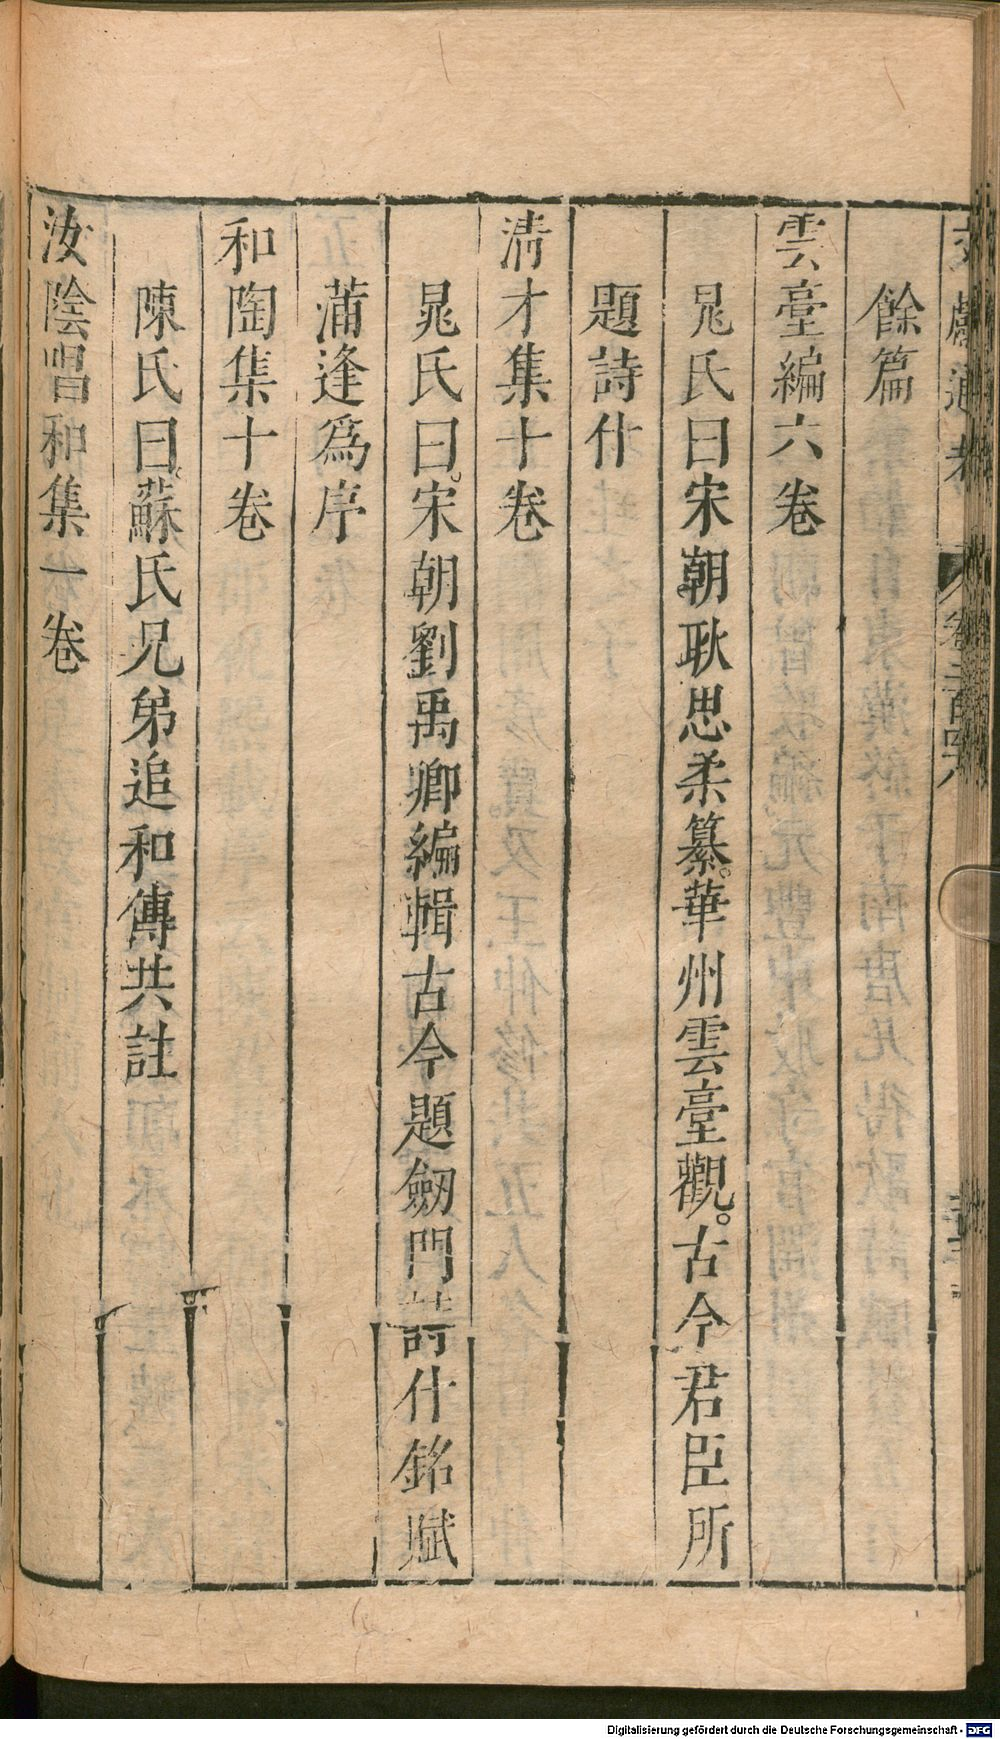 文獻通考 卷二百四八
餘篇
雲臺編六卷
晁氏曰宋朝耿思柔纂。華州雲臺觀。古今君臣所
題詩什
淸才集十卷
晁氏曰。宋朝劉禹卿編輯古今題劒門詩什銘賦
蒲逢爲序
和陶集十卷
陳氏曰。蘇氏兄弟追和傅共註
汝陰唱和集一卷
Digitalisierung gefördert durch die Deutsche Forschungsgemeinschaft - DFG